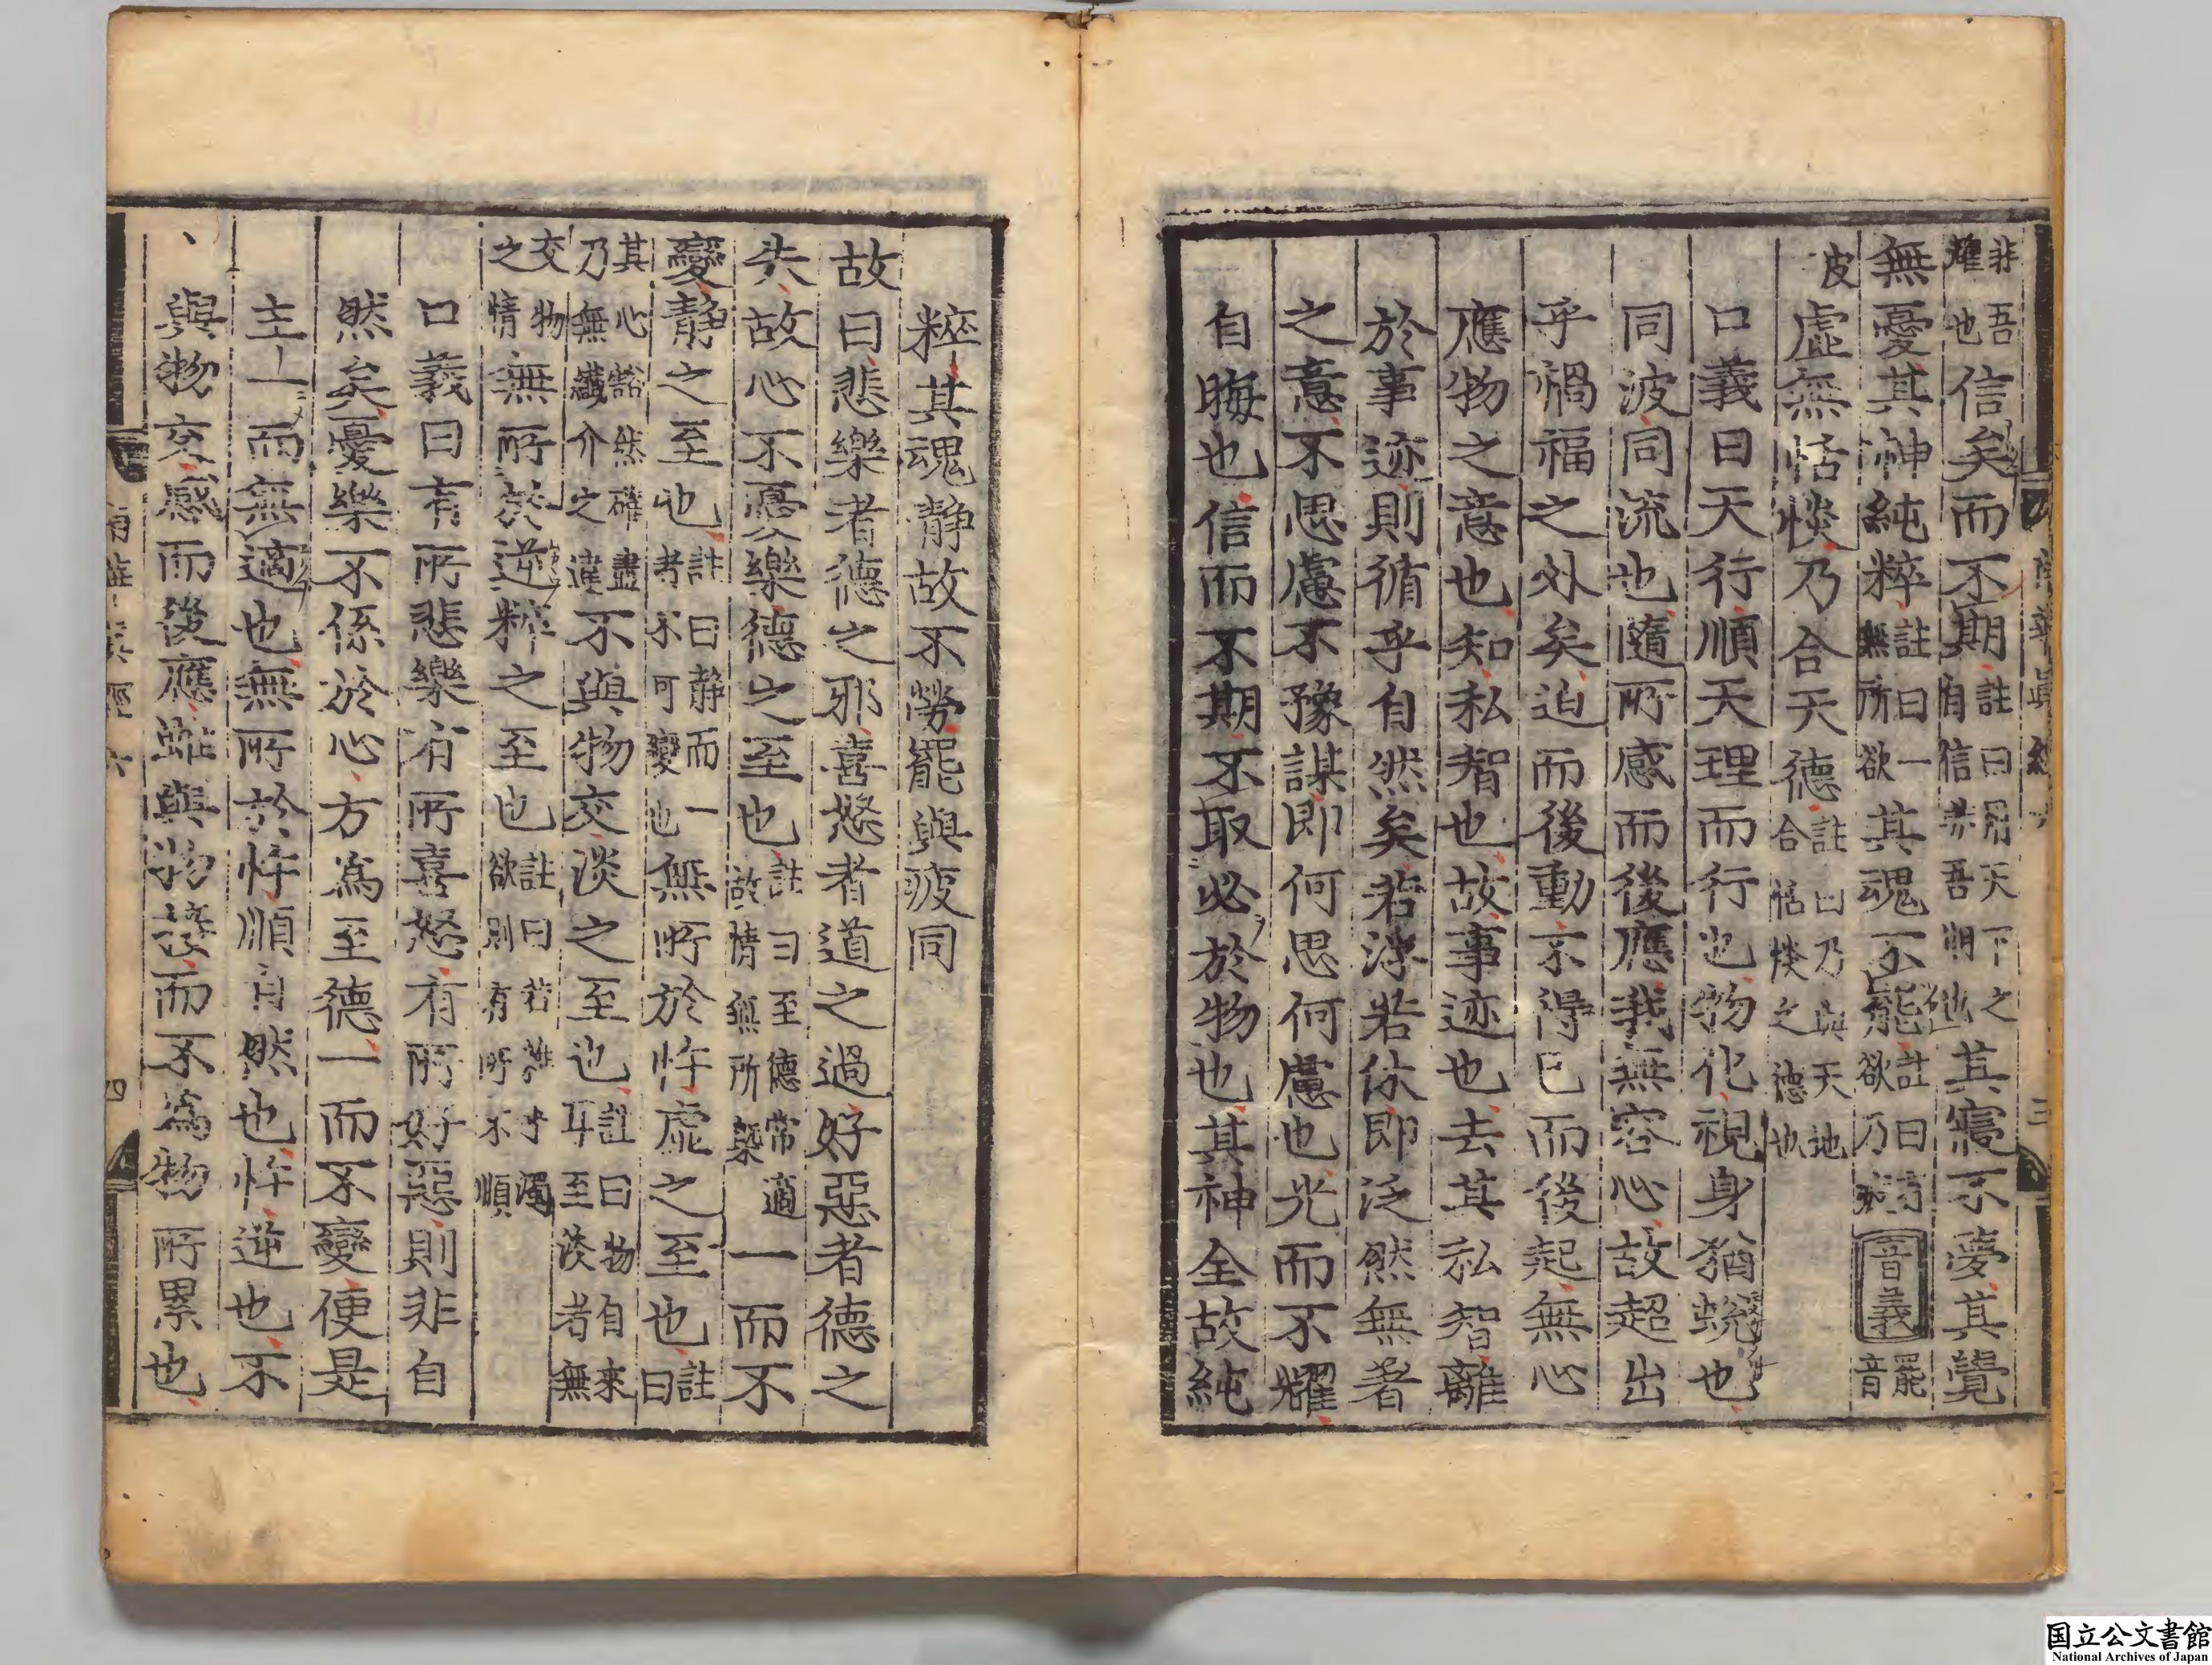 非吾耀也信矣而不期註曰用天下之自信非吾期也其寢不夢其覺
無憂其神純粹註曰一無所欲其魂不罷註曰有欲乃疲音義罷音
皮虛無恬惔乃合天德註曰乃與天地合恬惔之德也
口義曰天行順天理而行也物化視身猶蛻也
同波同流也隨所感而後應我無容心故超出
乎禍福之外矣迫而後動不得已而後起無心
應物之意也知私智也故事迹也去其私智離
於事迹則循乎自然矣若浮若休即泛然無著
之意不思慮不豫謀即何思何慮也光而不耀
自晦也信而不期不取必於物也其神全故純
粹其魂靜故不勞罷與疲同
故曰悲樂者德之邪喜怒者道之過好惡者德之
失故心不憂樂德之至也註曰至德常適故情無所槩一而不
變靜之至也註曰靜而一者不可變也無所於忤虛之至也註曰
其心豁然確盡乃無纖介之違不與物交淡之至也註曰物自來耳至淡者無
交物之情無所於逆粹之至也註曰若雜乎濁欲則有所不順
口義曰有所悲樂有所喜怒有所好惡則非自
然矣憂樂不係於心方為至德一而不變便是
主一而無適也無所於忤順自然也忤逆也不
與物交感而後應雖與物接而不為物所累也
南華眞經六 三
南華眞經六 四
国立公文書館
National Archives of Japan